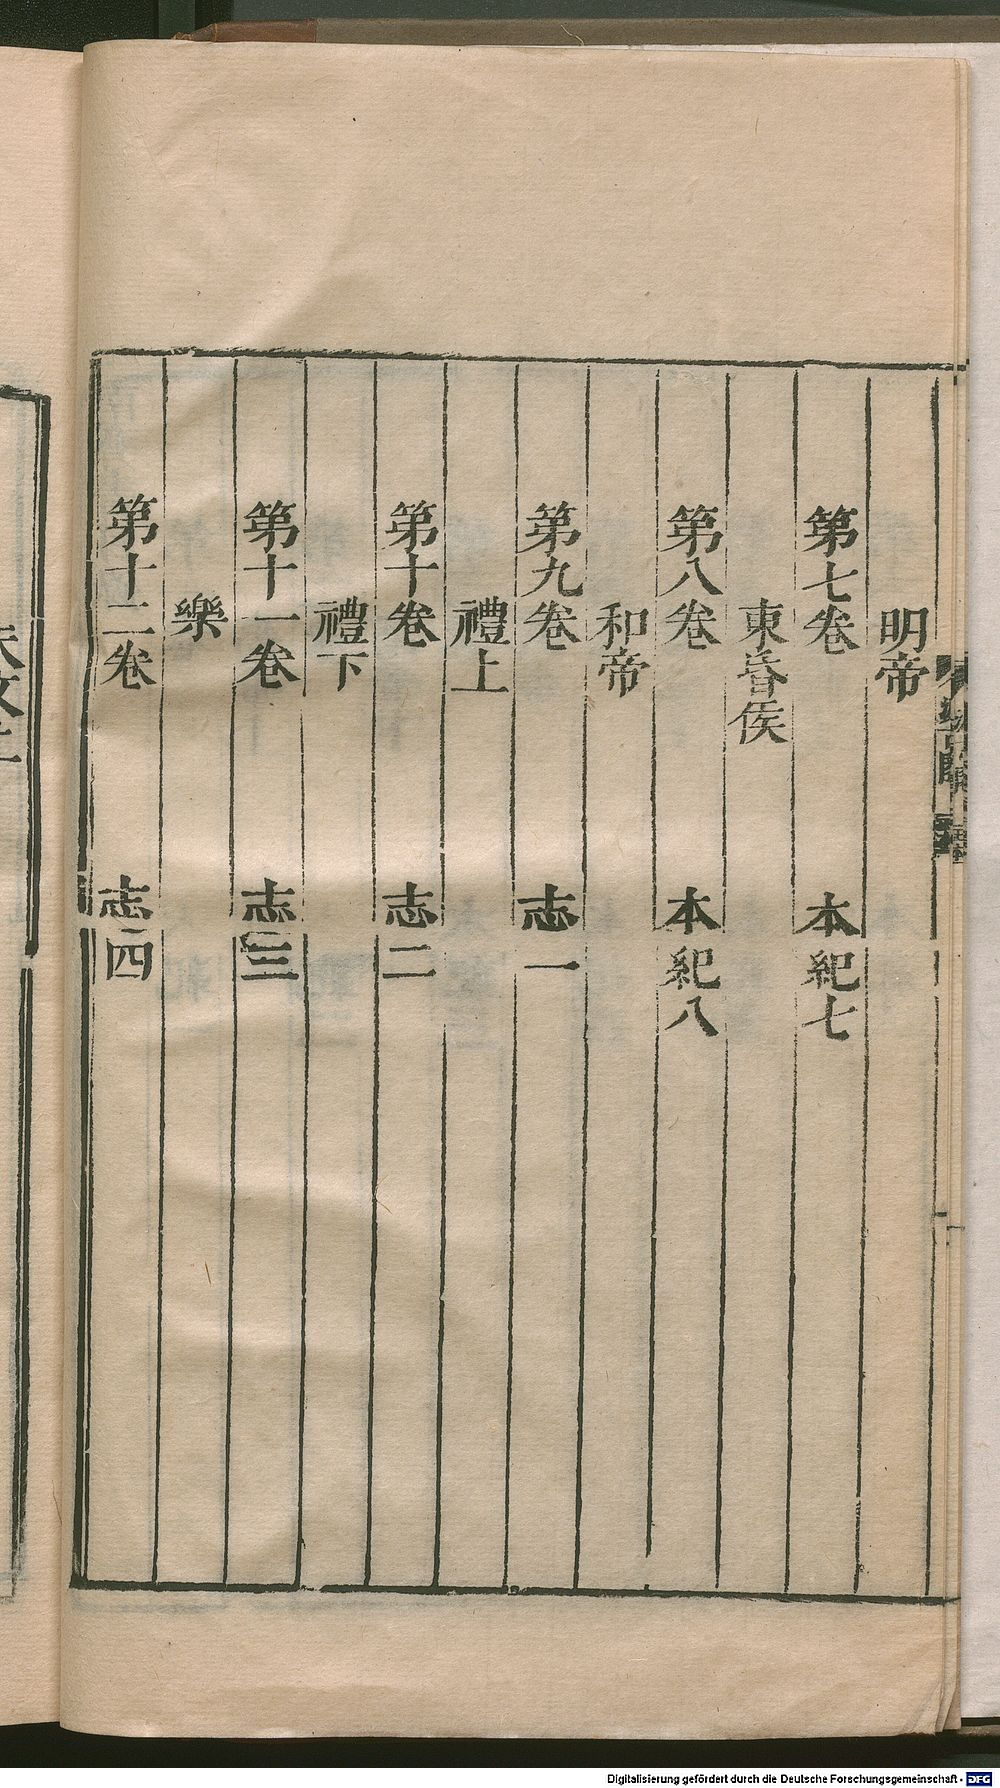 明帝
第七卷 本紀七
東昏侯
第八卷 本紀八
和帝
第九卷 志一
禮上
第十卷 志二
禮下
第十一卷 志三
樂
第十二卷 志四
Digitalisierung gefördert durch die Deutsche Forschungsgemeinschaft - DFG